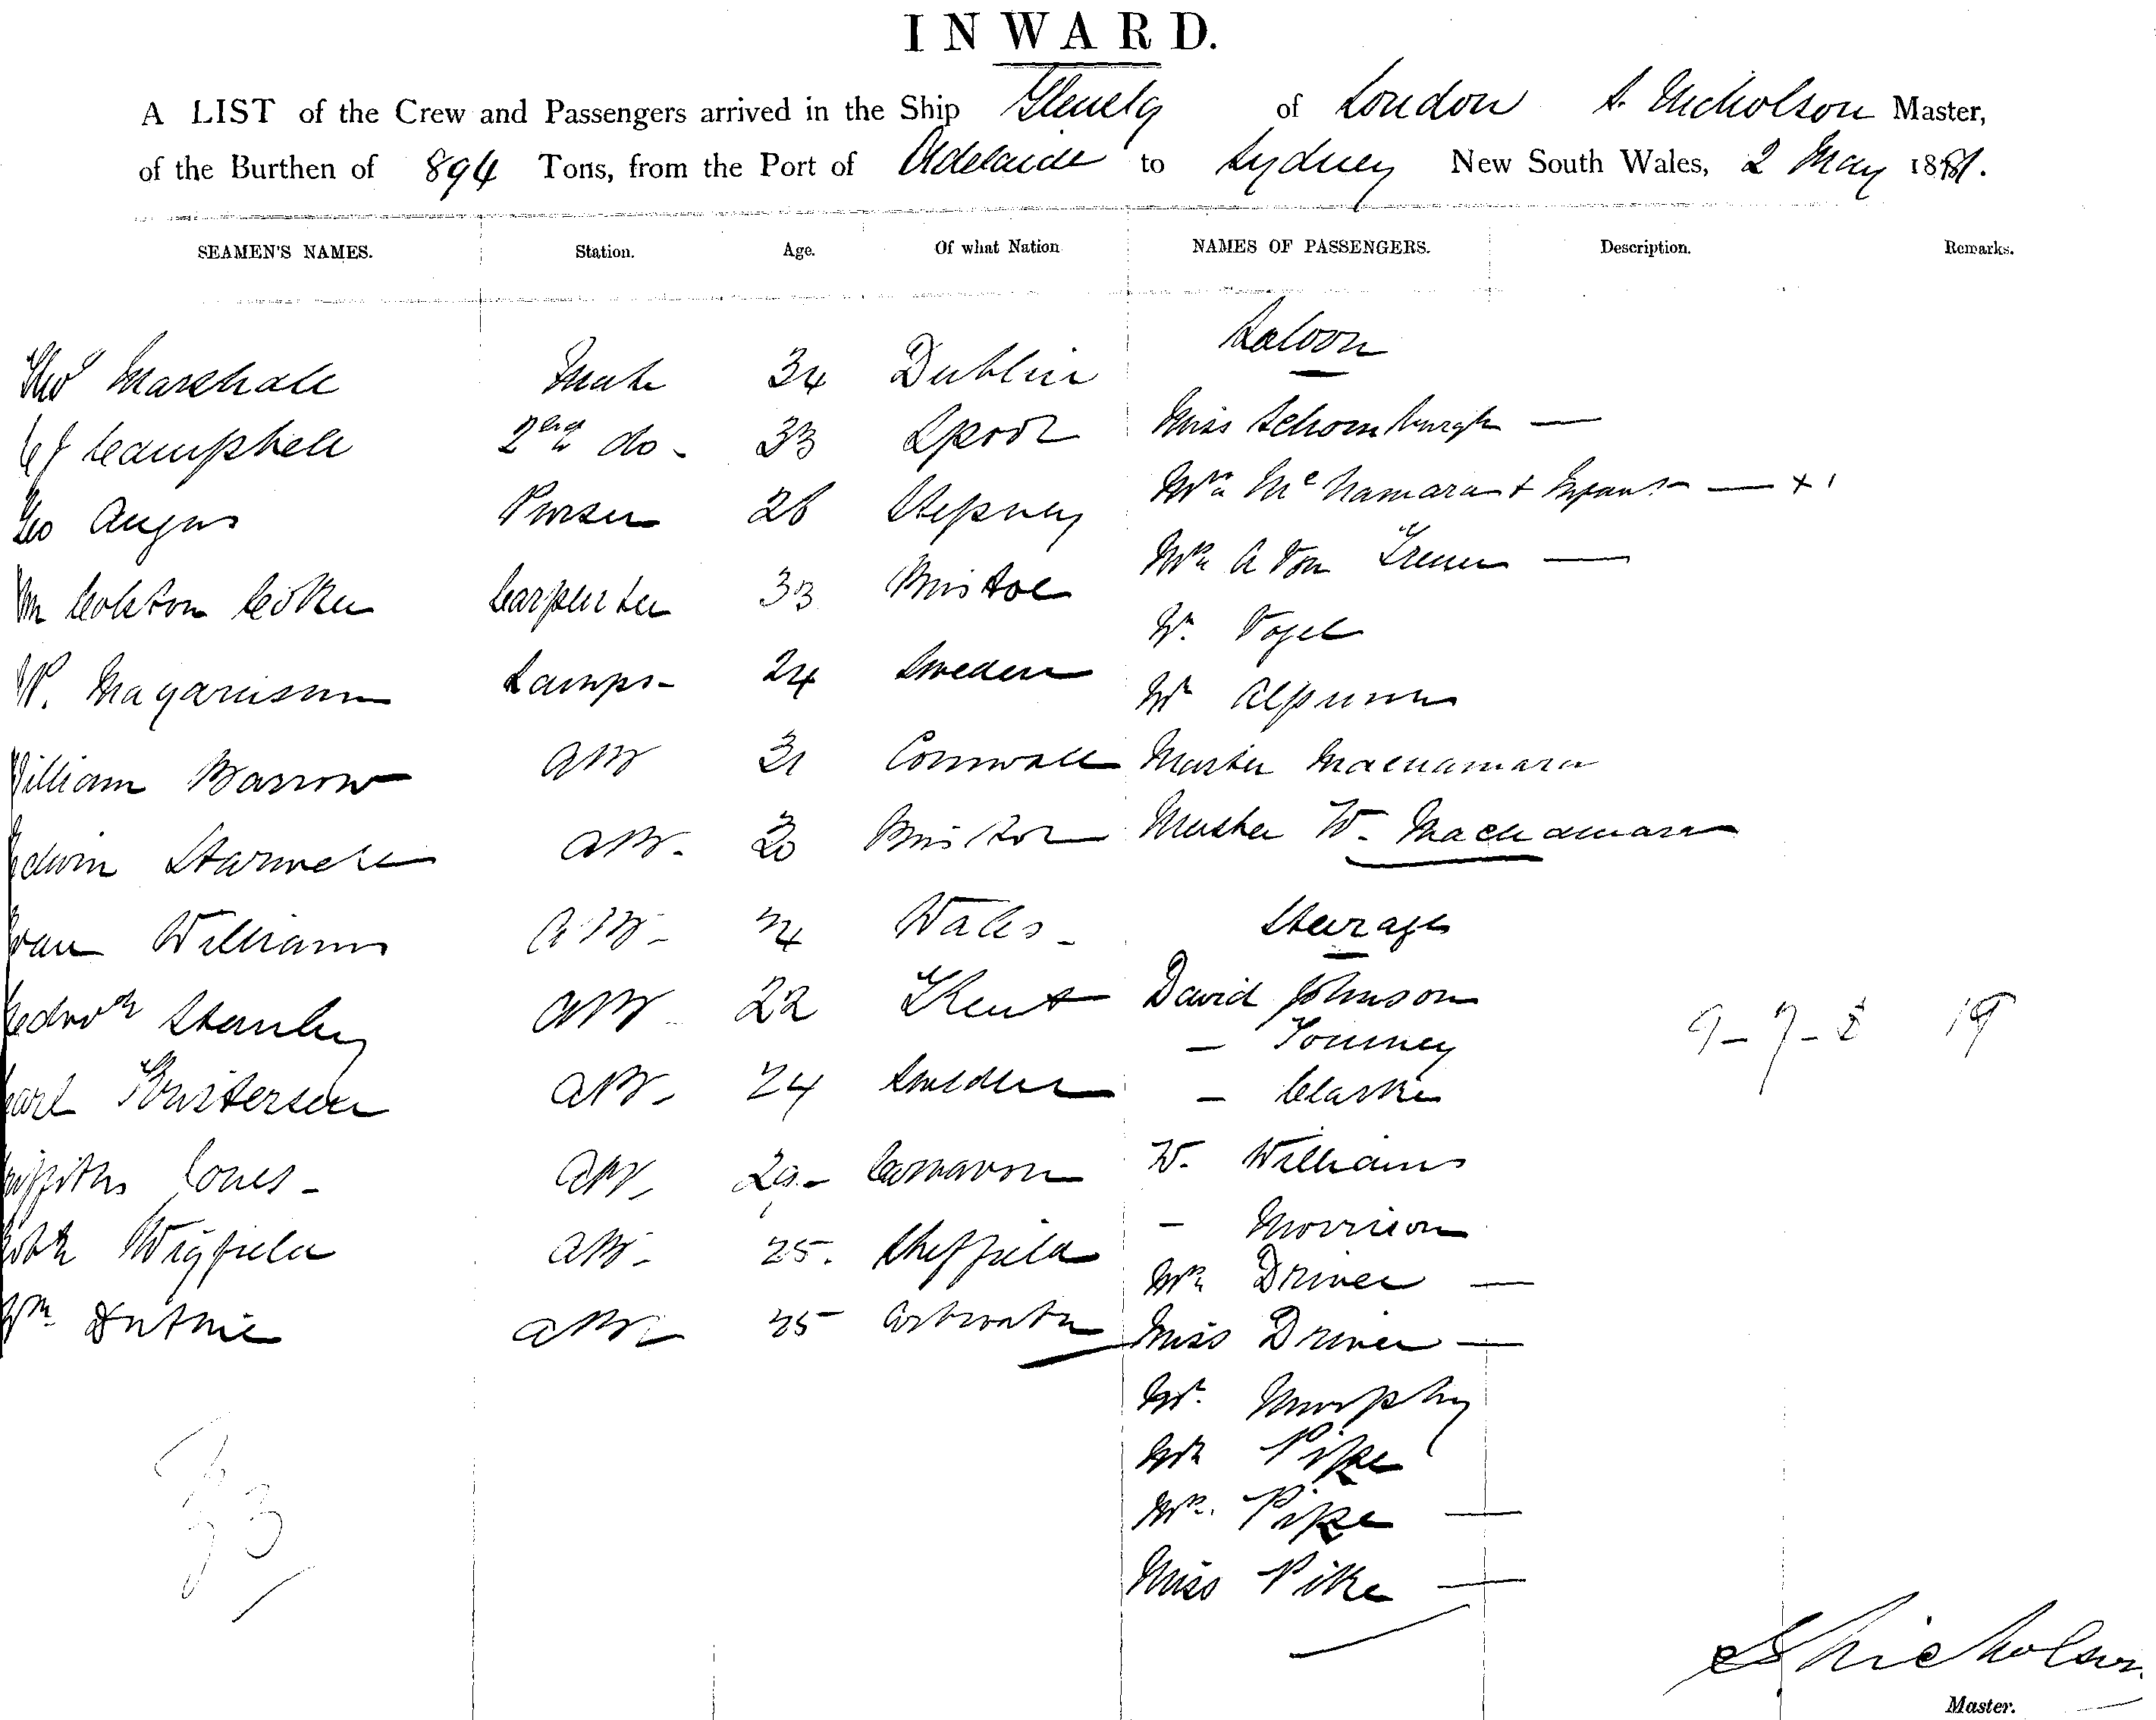 INWARD.
A LIST of the Crew and Passengers arrived in the Ship Glenelg of London S. Nicholson Master,
of the Burthen of 894 Tons, from the Port of Adelaide to Sydney New South Wales, 2 May 1881.
SEAMEN'S NAMES. Station. Age. Of what Nation NAMES OF PASSENGERS. Description. Remarks.
Saloon
Marshall Mate 34 Dublin
Campbell 2nd do - 33 Lpool Miss Schomburgh —
Geo Angus Purser 26 Stepney Mrs McNamara + Infant — + 1
Wm Colston Coker Carpenter 33 Bristol Mrs A Von Treuer —
Mr. Vogel
Lamps - 24 Sweden Mr
William Barrow AB 31 Cornwall Master Macnamara
Edwin Starwell AB. 30 Bristol Master W. Macnamara
Steerage
Evan Williams AB - 24 Wales -
Stanley AB - 22 Kent David Johnson
— Tourney
Carl AB - 24 Sweden — Clarke
9 - 7 - 3 19
Griffiths Jones - AB - 29 - Carnarvon W. Williams
— Morrison
Robt Wigfield AB - 25. Sheffield Mrs Driver —
Wm Duthie AB 25 Miss Driver —
Mr. Murphy
Mr Pike
Mrs. Pike —
Miss Pike —
33
S Nicholson
Master.